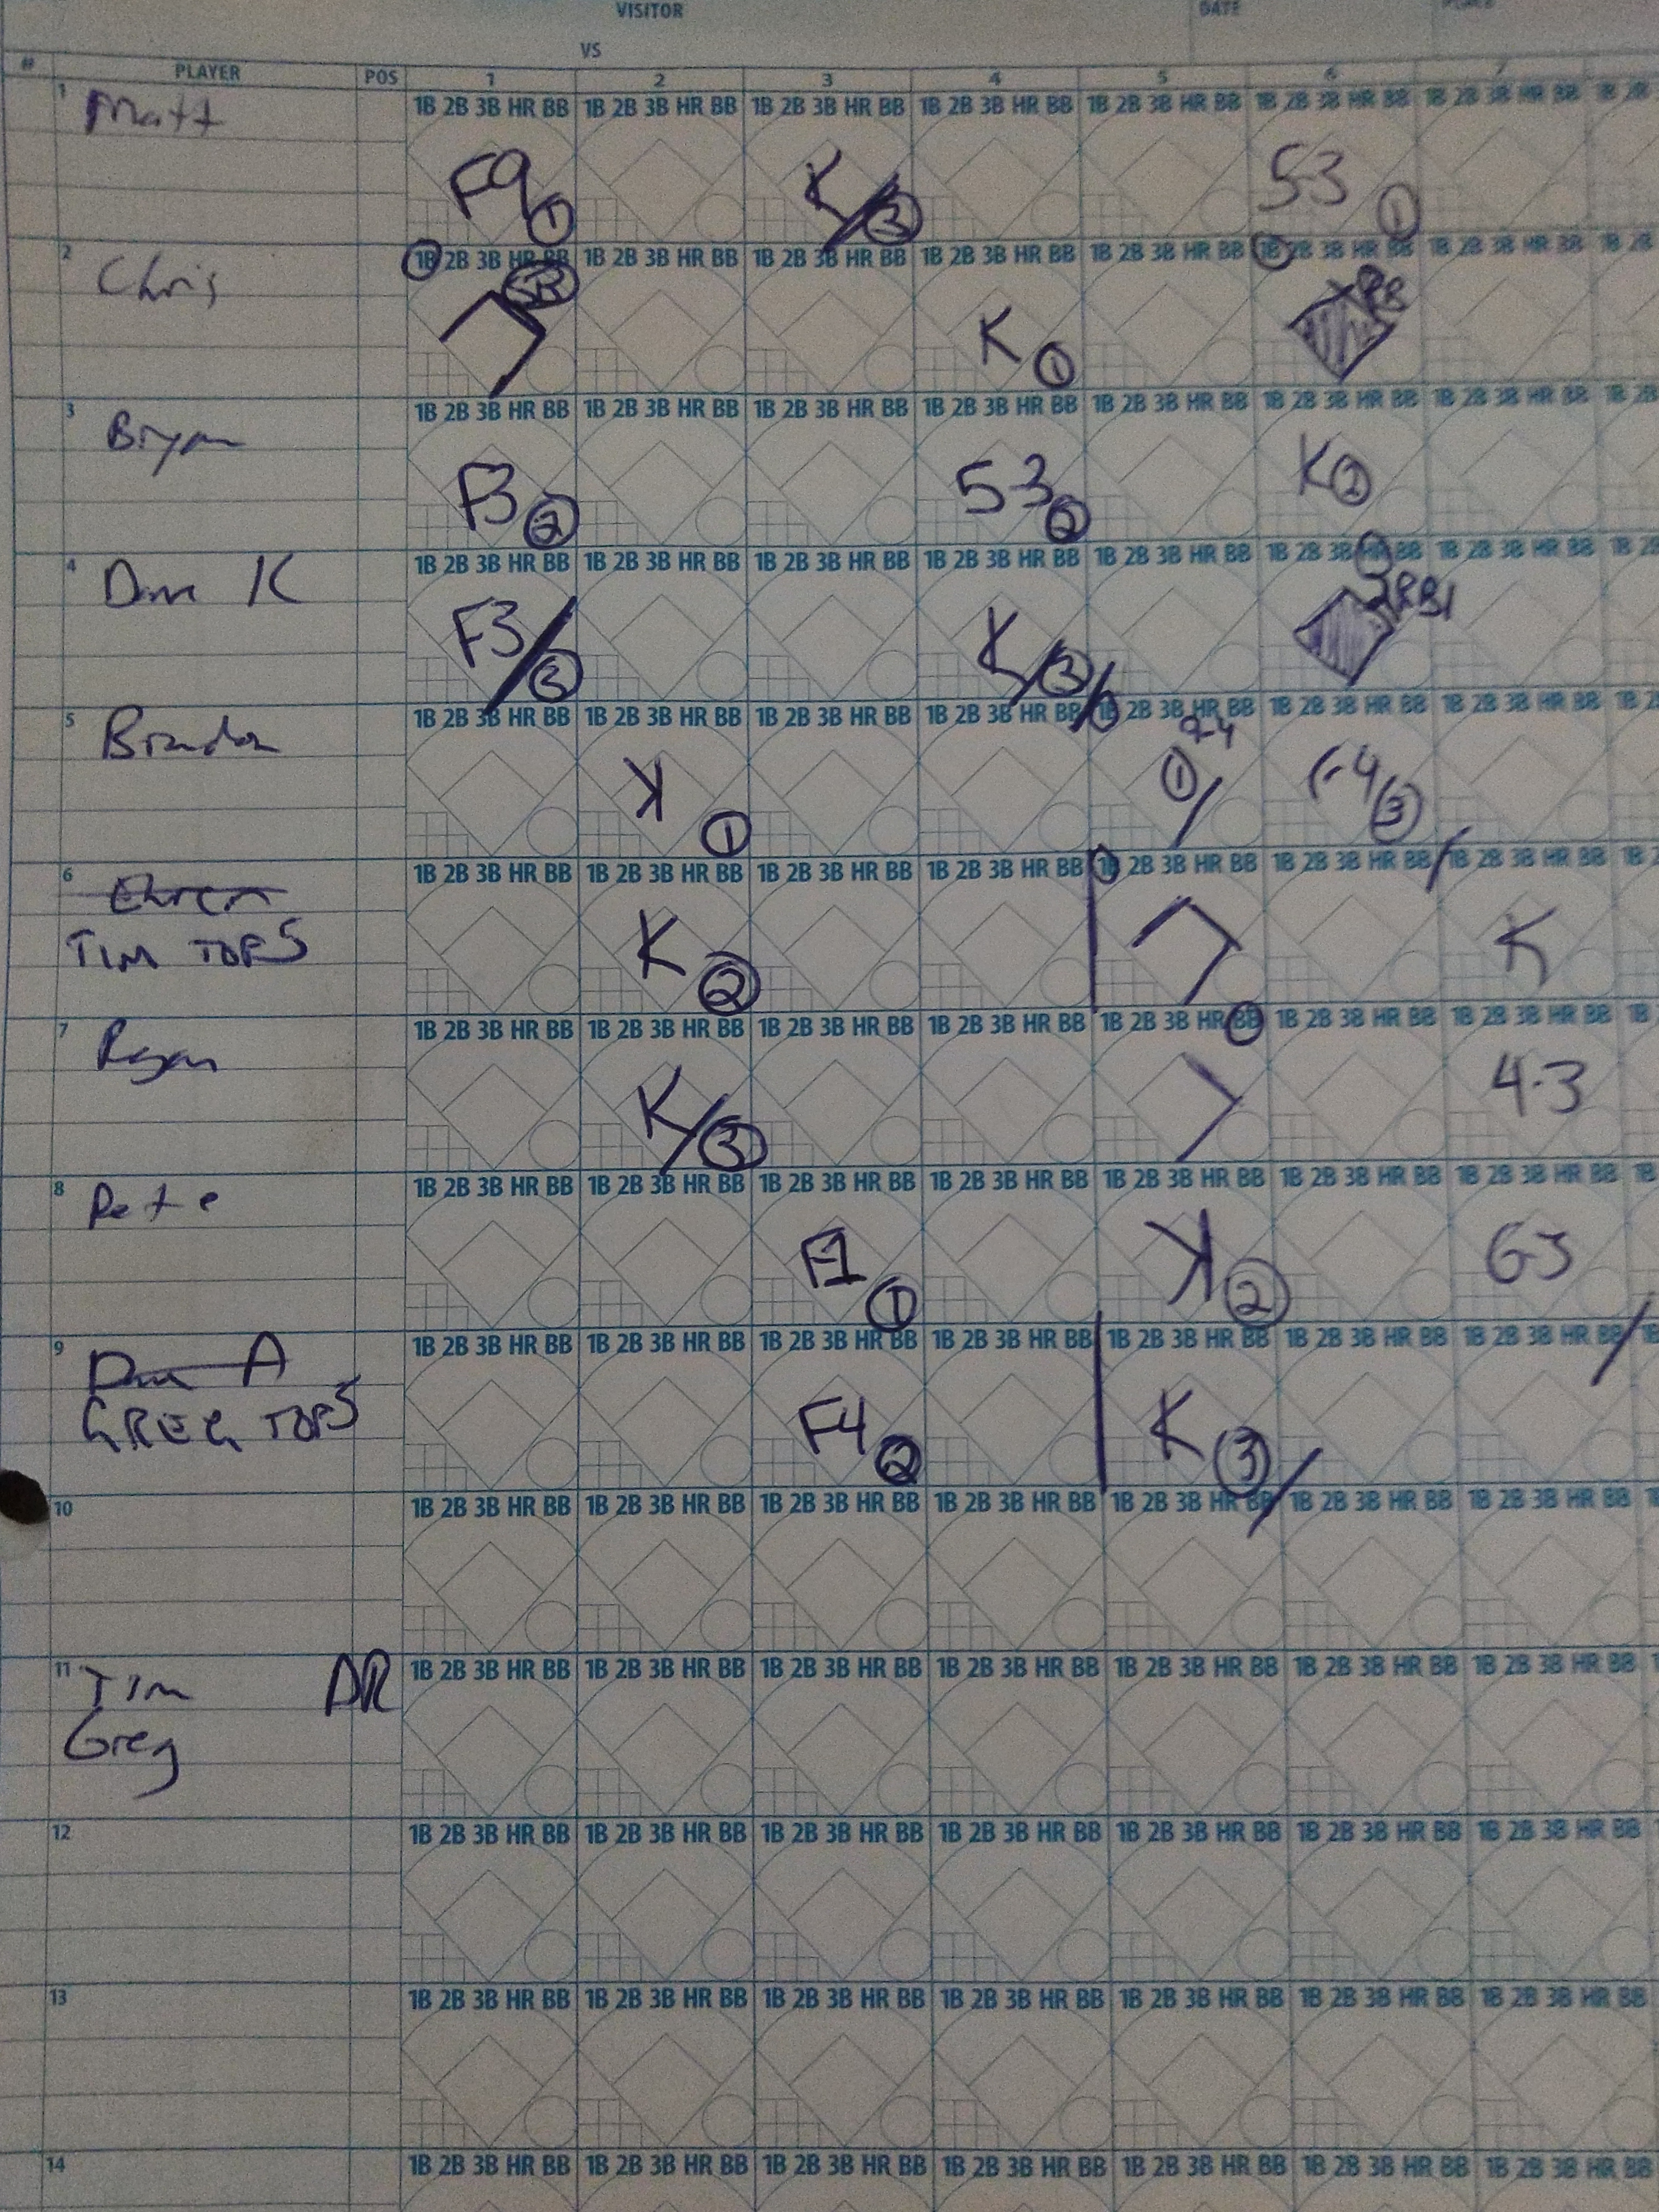 VISITOR DATE
VS
# PLAYER POS 1 2 3 4 5 6 7
1B 2B 3B HR BB 1B 2B 3B HR BB 1B 2B 3B HR BB 1B 2B 3B HR BB 1B 2B 3B HR BB 1B 2B 3B HR BB 1B 2B 3B HR BB 1B 2B
1 Matt F9 1 K 3 53 1
1B 2B 3B HR BB 1B 2B 3B HR BB 1B 2B 3B HR BB 1B 2B 3B HR BB 1B 2B 3B HR BB 1B 2B 3B HR BB 1B 2B 3B HR BB 1B 2B
2 Chris SB K 1
1B 2B 3B HR BB 1B 2B 3B HR BB 1B 2B 3B HR BB 1B 2B 3B HR BB 1B 2B 3B HR BB 1B 2B 3B HR BB 1B 2B 3B HR BB 1B 2B
3 Bryan F3 2 53 2 K 2
1B 2B 3B HR BB 1B 2B 3B HR BB 1B 2B 3B HR BB 1B 2B 3B HR BB 1B 2B 3B HR BB 1B 2B 3B HR BB 1B 2B 3B HR BB 1B 2B
4 Dave K F3 3 K 3 2RBI
1B 2B 3B HR BB 1B 2B 3B HR BB 1B 2B 3B HR BB 1B 2B 3B HR BB 1B 2B 3B HR BB 1B 2B 3B HR BB 1B 2B 3B HR BB 1B 2
5 Brandon K 1 24 1 F4 3
1B 2B 3B HR BB 1B 2B 3B HR BB 1B 2B 3B HR BB 1B 2B 3B HR BB 1B 2B 3B HR BB 1B 2B 3B HR BB 1B 2B 3B HR BB 1B
6 Ehren
TIM TOP 5 K 2 K
1B 2B 3B HR BB 1B 2B 3B HR BB 1B 2B 3B HR BB 1B 2B 3B HR BB 1B 2B 3B HR BB 1B 2B 3B HR BB 1B 2B 3B HR BB 1B
7 Ryan K 3 4-3
1B 2B 3B HR BB 1B 2B 3B HR BB 1B 2B 3B HR BB 1B 2B 3B HR BB 1B 2B 3B HR BB 1B 2B 3B HR BB 1B 2B 3B HR BB 1B
8 Pete F1 1 K 2 63
1B 2B 3B HR BB 1B 2B 3B HR BB 1B 2B 3B HR BB 1B 2B 3B HR BB 1B 2B 3B HR BB 1B 2B 3B HR BB 1B 2B 3B HR BB
9 Dave A
GREG TOP 5 F4 2 K 3
1B 2B 3B HR BB 1B 2B 3B HR BB 1B 2B 3B HR BB 1B 2B 3B HR BB 1B 2B 3B HR BB 1B 2B 3B HR BB 1B 2B 3B HR BB
10
1B 2B 3B HR BB 1B 2B 3B HR BB 1B 2B 3B HR BB 1B 2B 3B HR BB 1B 2B 3B HR BB 1B 2B 3B HR BB 1B 2B 3B HR BB
11 Tim DR
Greg
1B 2B 3B HR BB 1B 2B 3B HR BB 1B 2B 3B HR BB 1B 2B 3B HR BB 1B 2B 3B HR BB 1B 2B 3B HR BB 1B 2B 3B HR BB
12
1B 2B 3B HR BB 1B 2B 3B HR BB 1B 2B 3B HR BB 1B 2B 3B HR BB 1B 2B 3B HR BB 1B 2B 3B HR BB 1B 2B 3B HR BB
13
1B 2B 3B HR BB 1B 2B 3B HR BB 1B 2B 3B HR BB 1B 2B 3B HR BB 1B 2B 3B HR BB 1B 2B 3B HR BB 1B 2B 3B HR BB
14